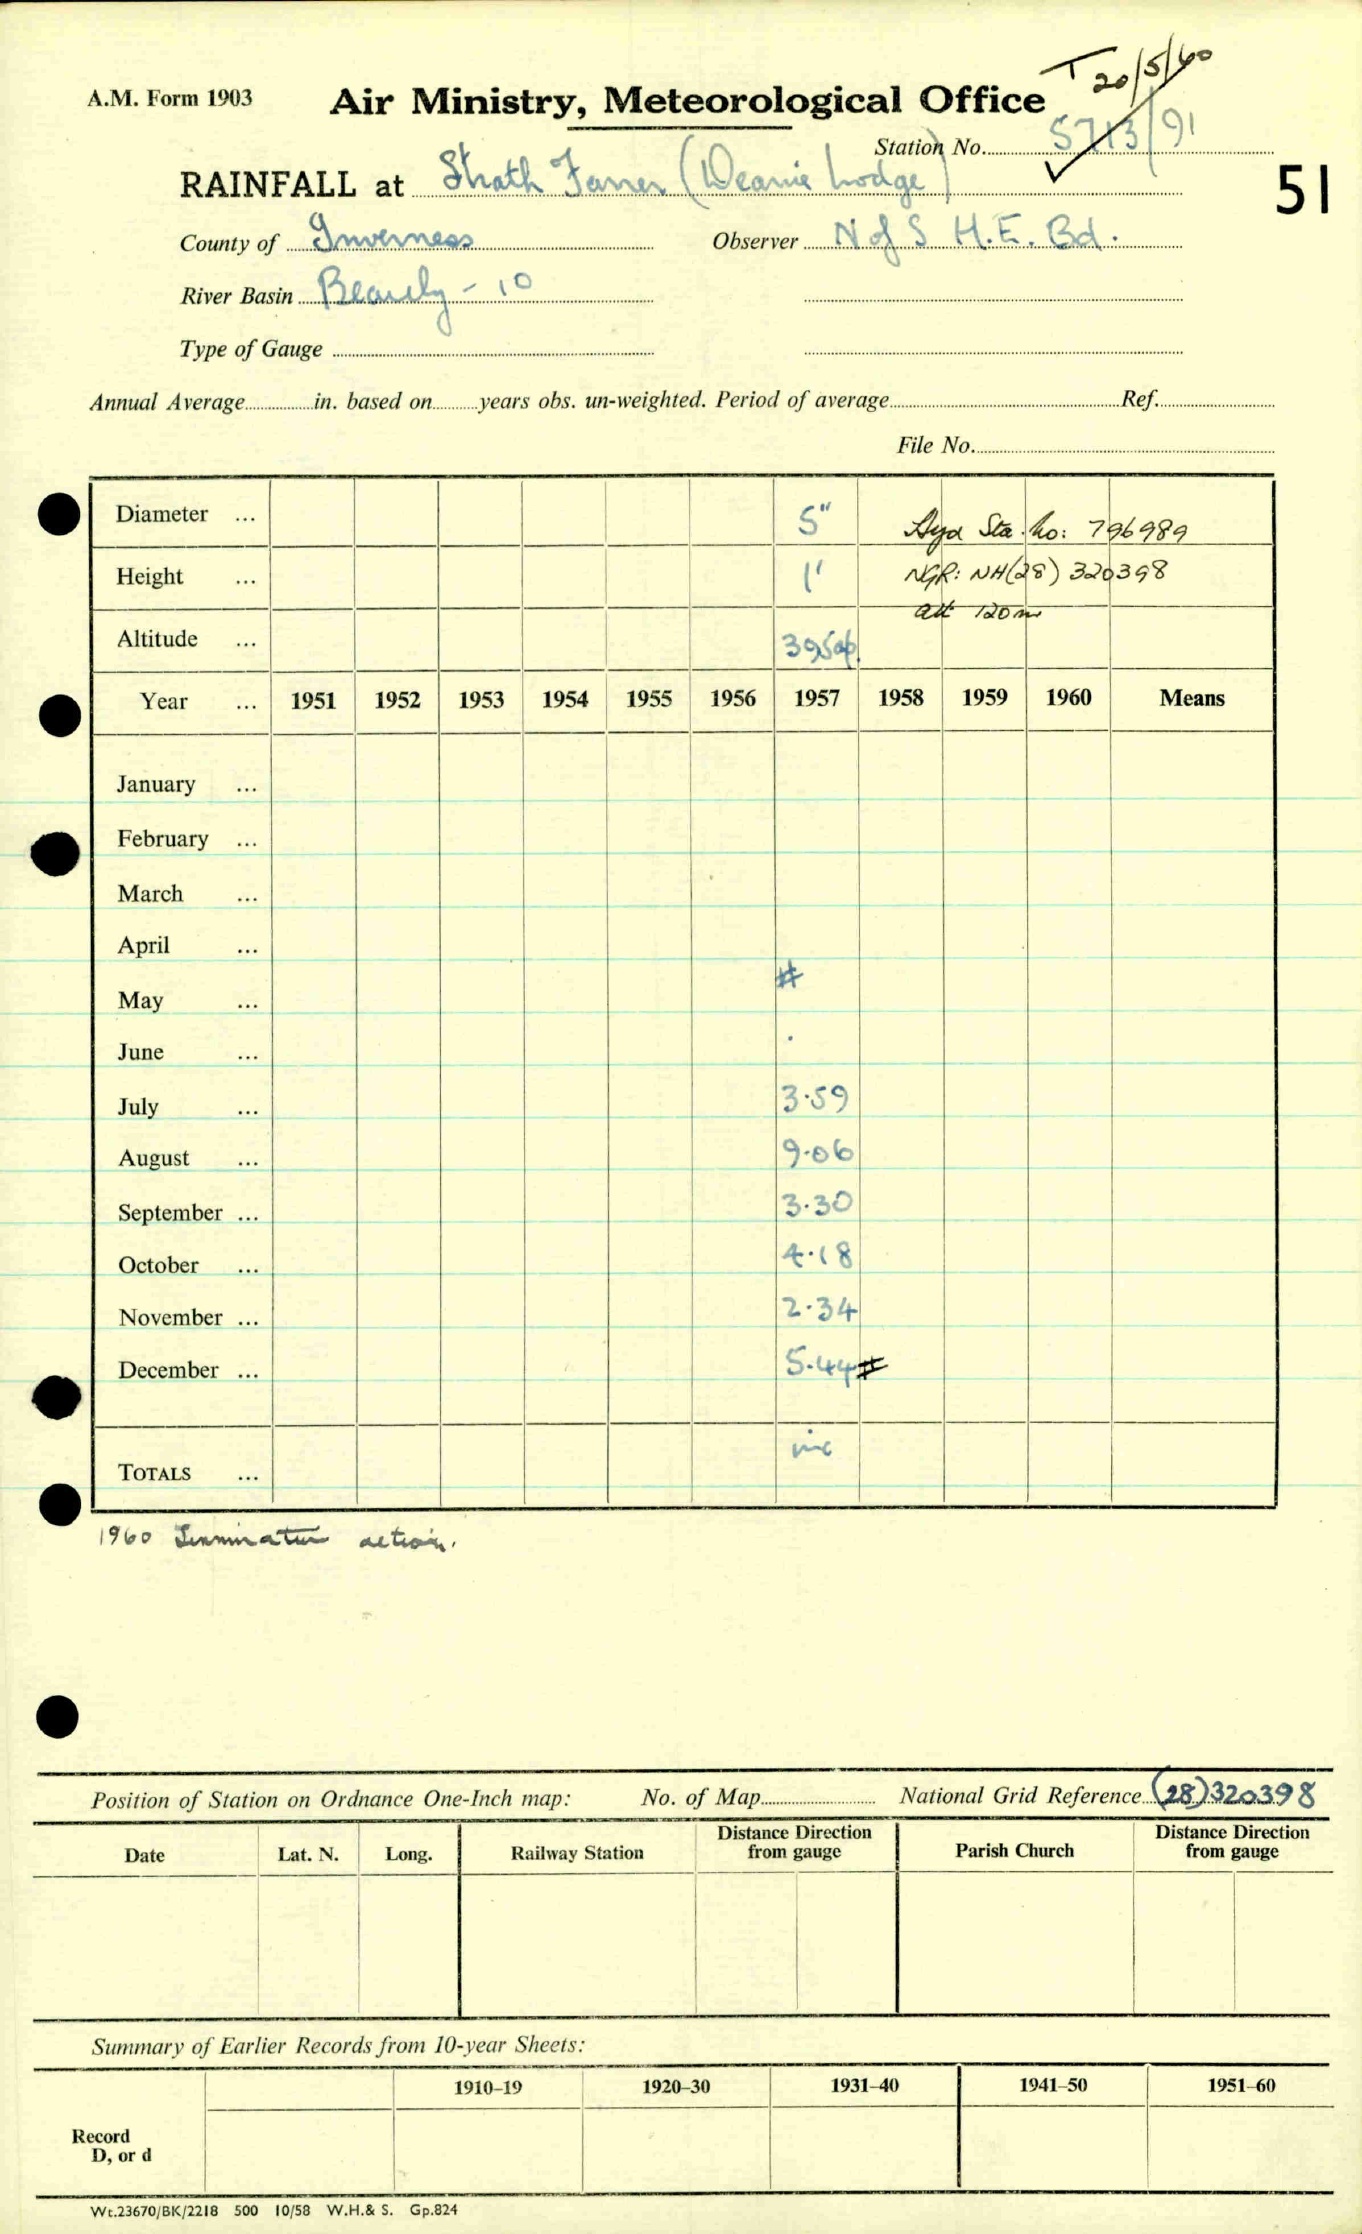 T 20/5/60
A.M. Form 1903 Air Ministry, Meteorological Office
Station No. 5713/91
51
RAINFALL at Strath Farrer (Deanie Lodge)
County of Inverness Observer N of S H.E. Bd.
River Basin Beauly - 10
Type of Gauge
Annual Average in. based on years obs. un-weighted. Period of average Ref.
File No.
Diameter ... 5" Hyd Sta. No: 796989
Height ... 1' NGR: NH(28) 320398
alt 120m
Altitude ... 395
Year ... 1951 1952 1953 1954 1955 1956 1957 1958 1959 1960 Means
January ...
February ...
March ...
April ...
#
May ...
June ... .
July ... 3.59
August ... 9.06
September ... 3.30
October ... 4.18
November ... 2.34
December ... 5.44#
TOTALS ... inc
1960 Termination action.
Position of Station on Ordnance One-Inch map: No. of Map National Grid Reference (28)320398
Date Lat. N. Long. Railway Station Distance Direction from gauge Parish Church Distance Direction from gauge
Summary of Earlier Records from 10-year Sheets:
1910–19 1920–30 1931–40 1941–50 1951–60
Record
D, or d
Wt.23670/BK/2218 500 10/58 W.H.& S. Gp.824